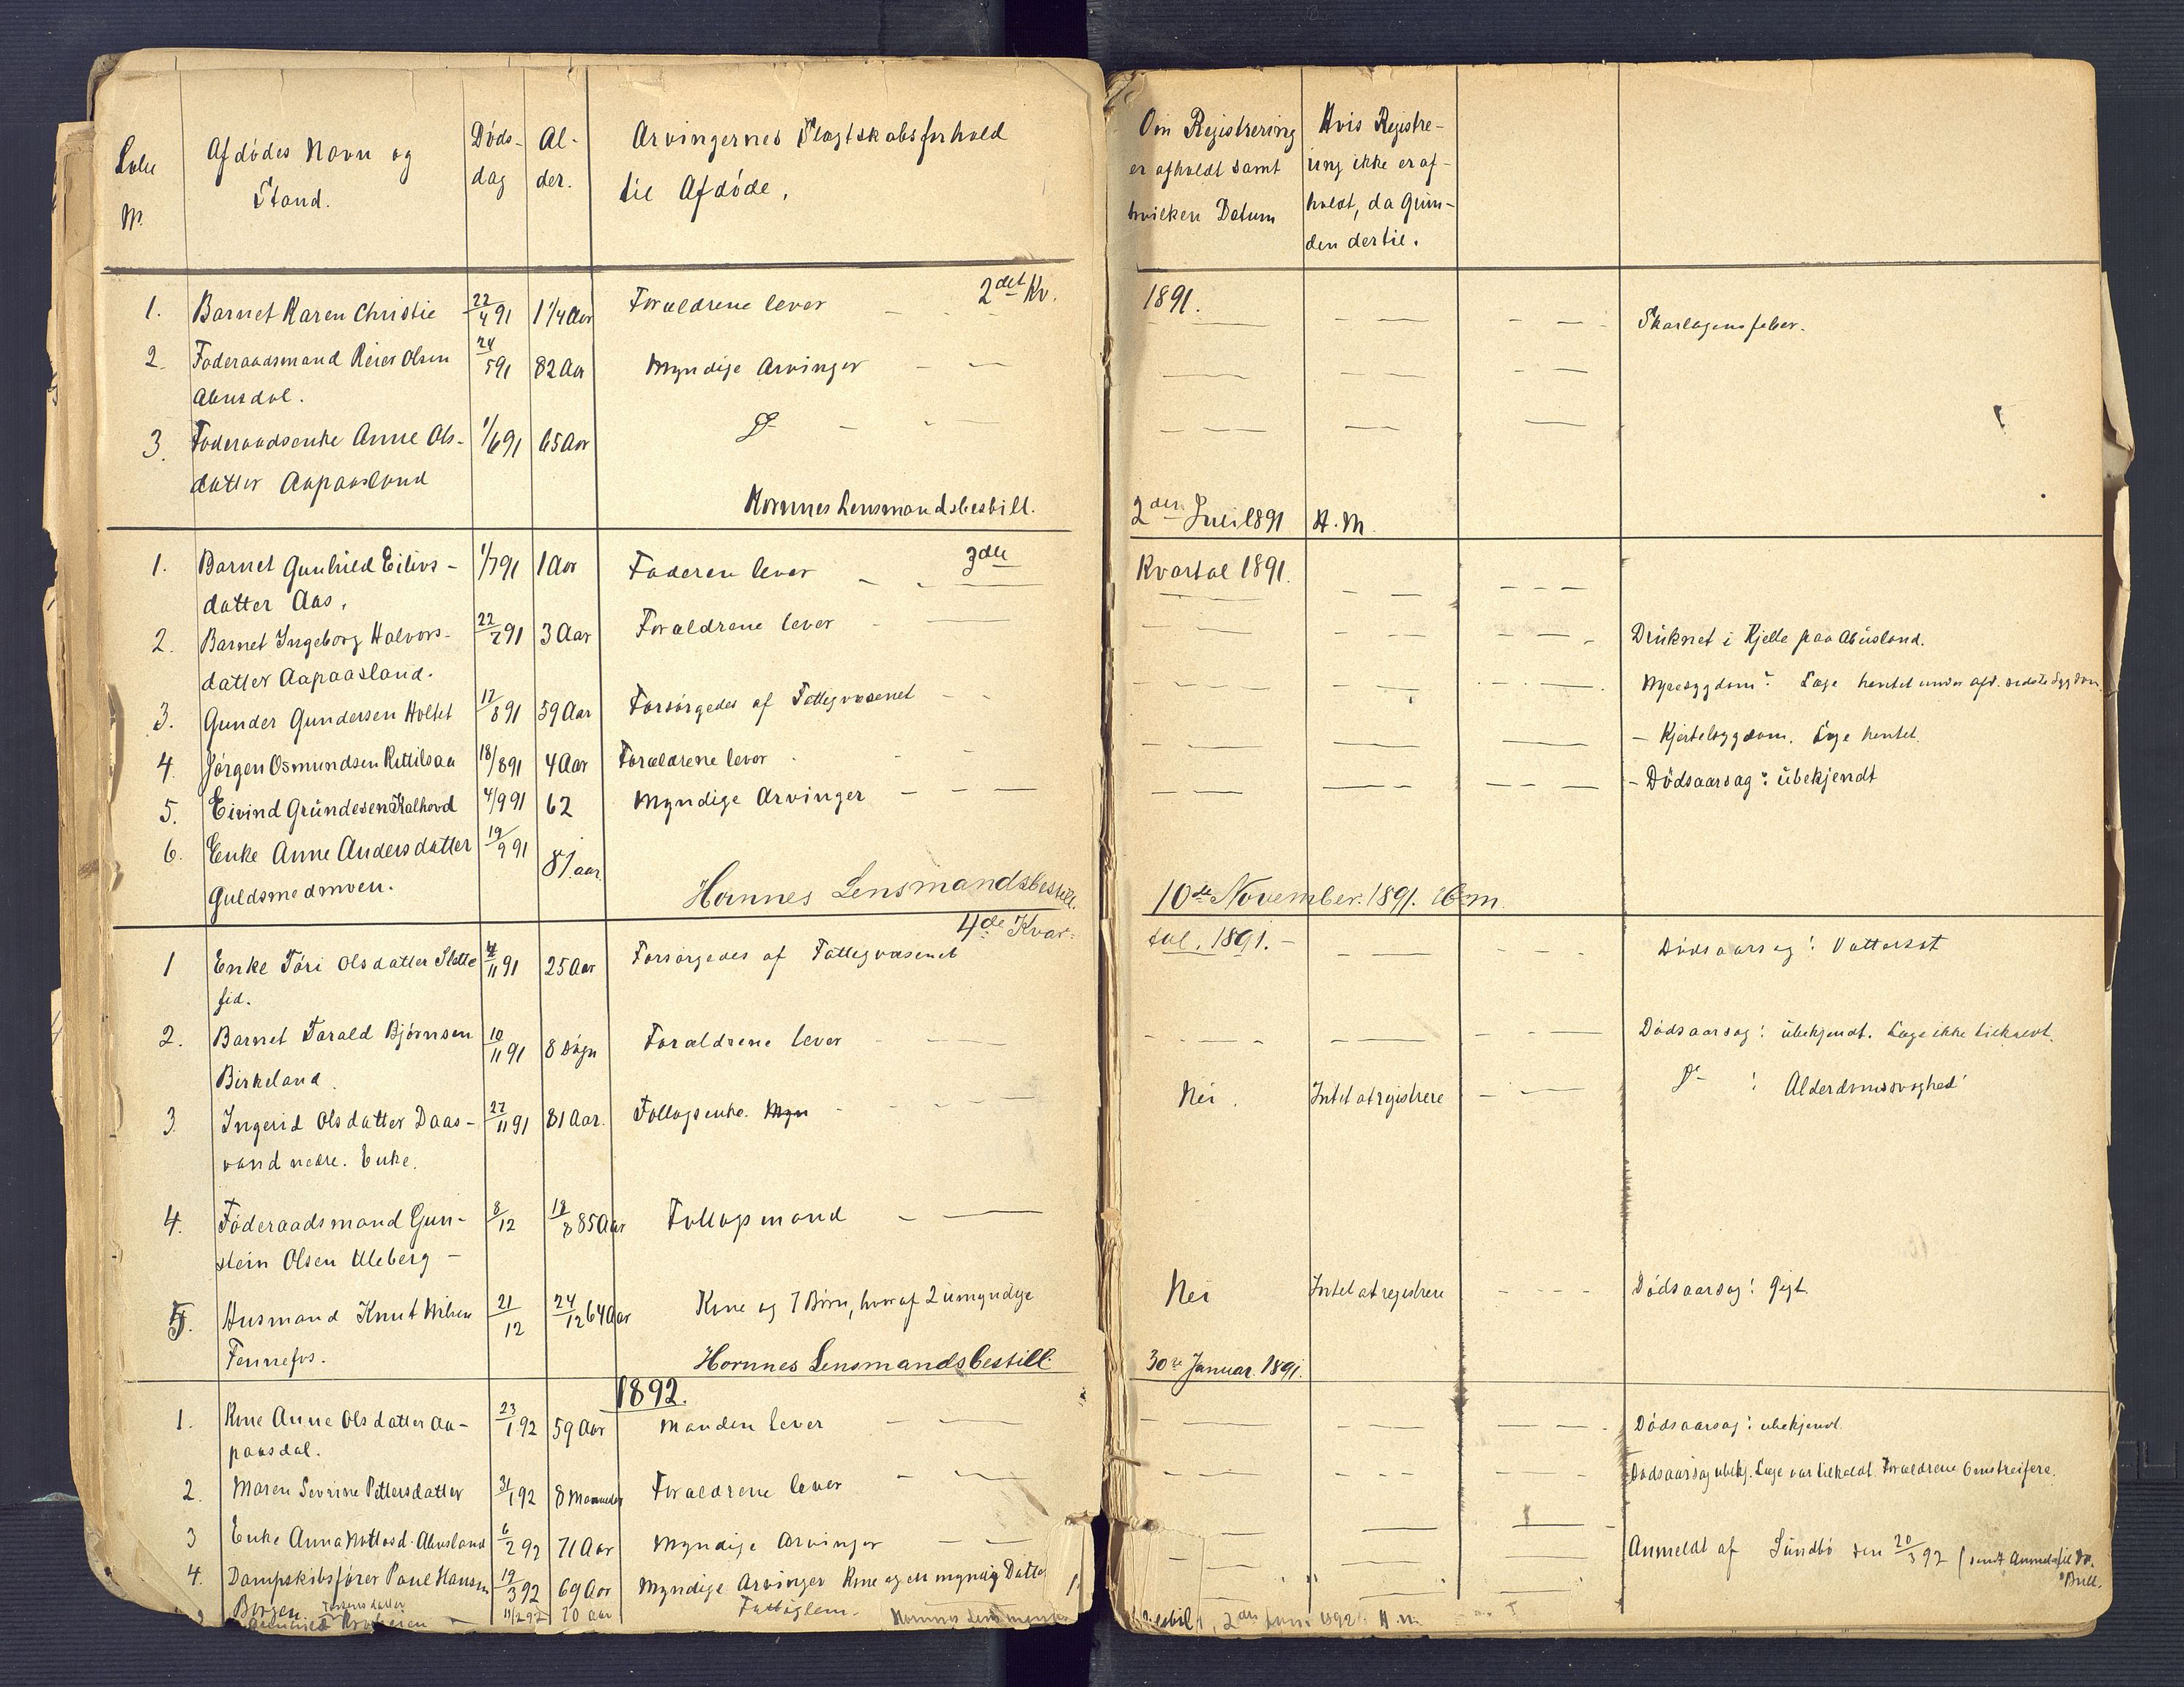 Løbe No. | Afdødes Navn og Stand. | Døds-dag | Al-der. | Arvingernes Slægtskabsforhold til Afdøde. | Om Registrering er afholdt samt hvilken Datum | Hvis Registre-ring ikke er af-holdt, da Grun-den dertil.
2det Kv. 1891.
1. Barnet Karen Christie 22/4 91 1 1/4 Aar Forældrene lever — Skarlagensfeber.
2. Føderaadsmand Reier Olsen 24/5 91 82 Aar Myndige Arvinger
Abusdal.
3. Føderaadsenke Anne Ols- 1/6 91 65 Aar do
datter Aapaasland
Hornnes Lensmandsbestill. 2den Juli 1891 H.M.
3die Kvartal 1891.
1. Barnet Gunhild Eilivs- 1/7 91 1 Aar Faderen lever
datter Aas.
2. Barnet Ingeborg Halvors- 22/7 91 3 Aar Forældrene lever — Druknet i Kjelle paa Abusland.
datter Aapaasland.
3. Gunder Gundersen Holtet 17/8 91 59 Aar Forsørgedes af Fattigvæsenet — Nyresygdom. Læge hentet under afd. sidste Sygdom.
4. Jørgen Osmundsen Kittilsaa 18/8 91 4 Aar Forældrene lever — Kjertelsygdom. Læge hentet.
5. Eivind Grundesen Kalhovd 4/9 91 62 Myndige Arvinger — Dødsaarsag: ubekjendt
6. Enke Anne Andersdatter 19/9 91 81 aar
Guldsmedmoen.
Hornnes Lensmandsbestill. 10de November 1891. H.M.
4de Kvartal. 1891.
1 Enke Tóri Olsdatter Slette 4/11 91 25 Aar Forsørgedes af Fattigvæsenet — Dødsaarsag: Vattersot
fid.
2. Barnet Tarald Bjørnsen 10/11 91 8 Døgn Forældrene lever — Dødsaarsag: ubekjendt. Læge ikke tilkaldt.
Birkeland.
3 Ingerid Olsdatter Daas- 27/11 91 81 Aar. Fattigenke. Myn Nei. Intet at registrere do : Alderdomssvaghed
vand nedre. Enke.
4. Føderaadsmand Gun- 8/12 18/8 85 Aar Fattigmand
stein Olsen Uleberg —
5. Husmand Knut Nilsen 21/12 24/12 64 Aar Kone og 7 Børn, hvoraf 2 umyndige Nei Intet at registrere Dødsaarsag: Gigt.
Fennefos.
Hornnes Lensmandsbestill. 30te Januar 1891.
1892.
1. Kone Anne Olsdatter Aa- 23/1 92 59 Aar Manden lever — Dødsaarsag: ubekjendt.
paasdal.
2. Maren Sevrine Pettersdatter 31/1 92 8 Maaneder Forældrene lever — Dødsaarsag ubekj. Læge var tilkaldt. Forældrene Omstreifere.
3 Enke Anna Abusland 6/2 92 71 Aar Myndige Arvinger
4. Dampskibsfører Paul Hansen 19/3 92 69 Aar Myndige Arvinger Kone og en myndig Datter Anmeldt af Sundbø den 20/3 92 (sendt
Borgen
Torkelsdatter
Gunhild 11/2 92 70 aar Fattiglem. Hornnes Lensmands
bestil, 2den Juni 1892. H.M.